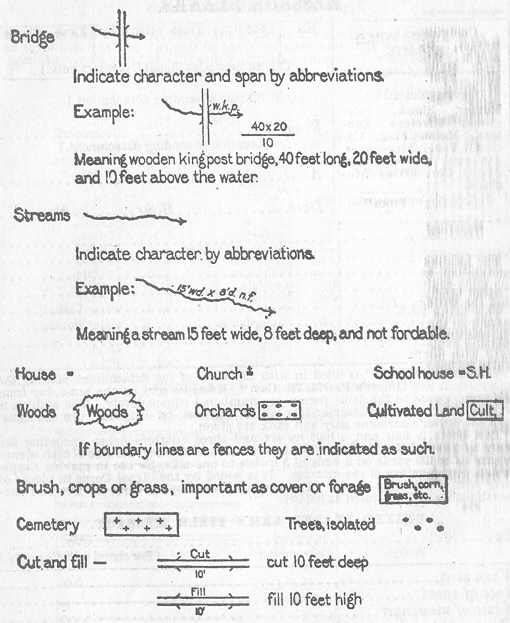 Bridge
Indicate character and span by abbreviations.
Example: w.k.p.
40x20
10
Meaning wooden king post bridge, 40 feet long, 20 feet wide,
and 10 feet above the water.
Streams
Indicate character by abbreviations.
Example: 15'wd. x 8'd. n.f.
Meaning a stream 15 feet wide, 8 feet deep, and not fordable.
House Church School house S.H.
Woods Woods Orchards Cultivated Land Cult.
If boundary lines are fences they are indicated as such.
Brush, crops or grass, important as cover or forage Brush, corn,
grass, etc.
Cemetery Trees, isolated
Cut and fill — Cut cut 10 feet deep
10'
Fill fill 10 feet high
10'